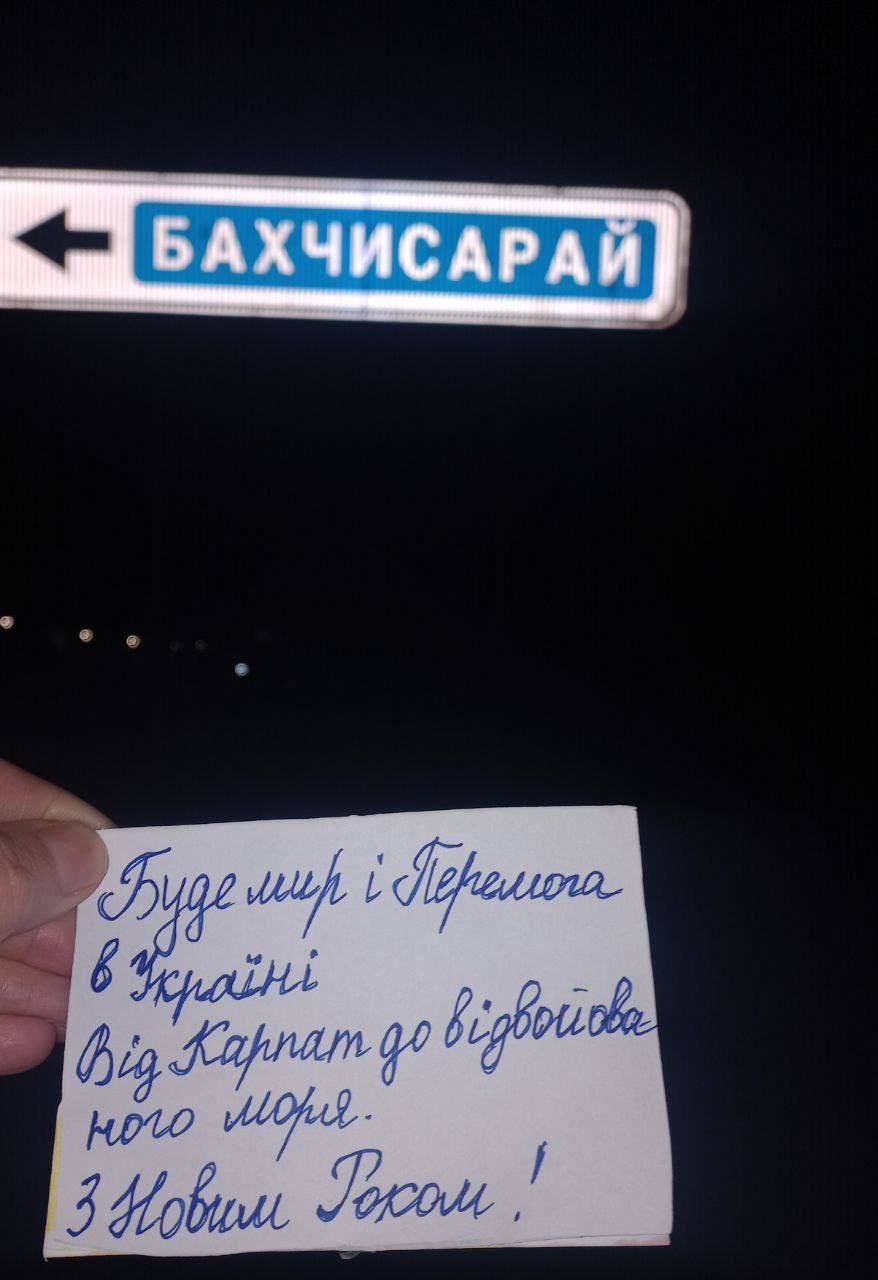 БАХЧИСАРАЙ
Буде мир і Перемога
в Україні
Від Карпат до відвойова-
ного моря.
З Новим Роком!